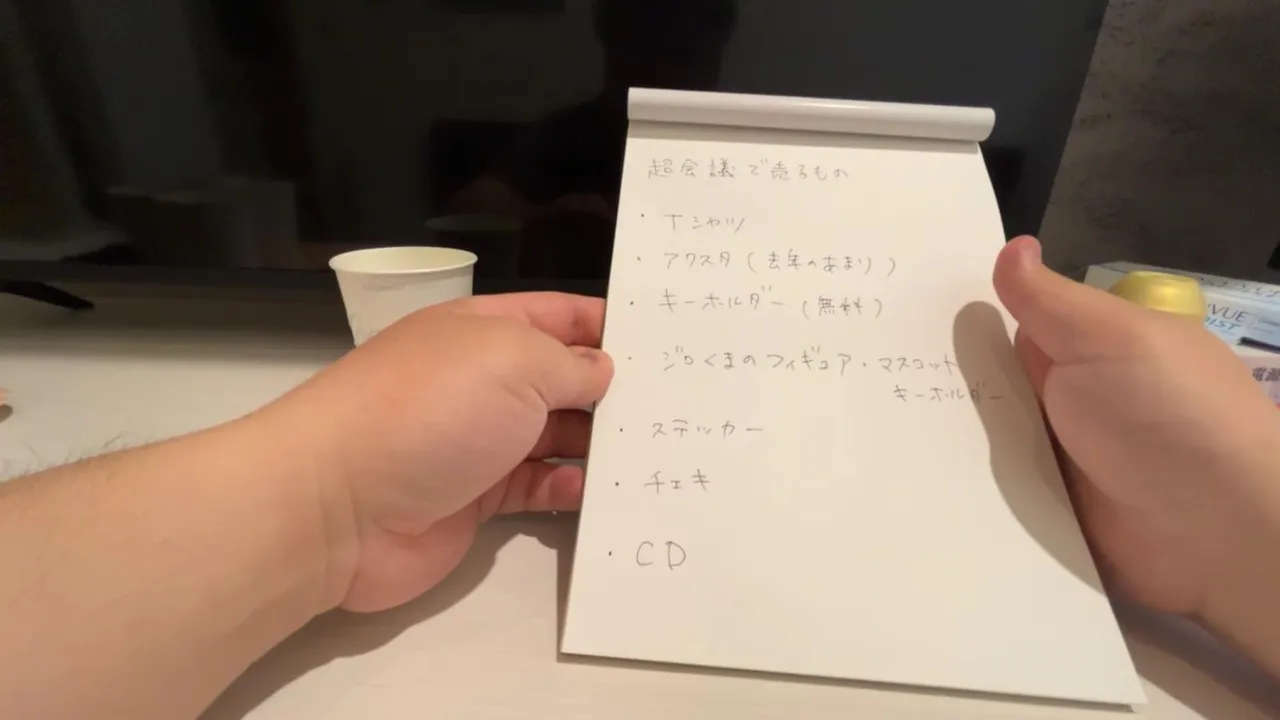 超会議で売るもの
・Tシャツ
・アクスタ(去年のあまり)
・キーホルダー(無料)
・ジロくまのフィギュア・マスコット
キーホルダー
・ステッカー
・チェキ
・CD
電源